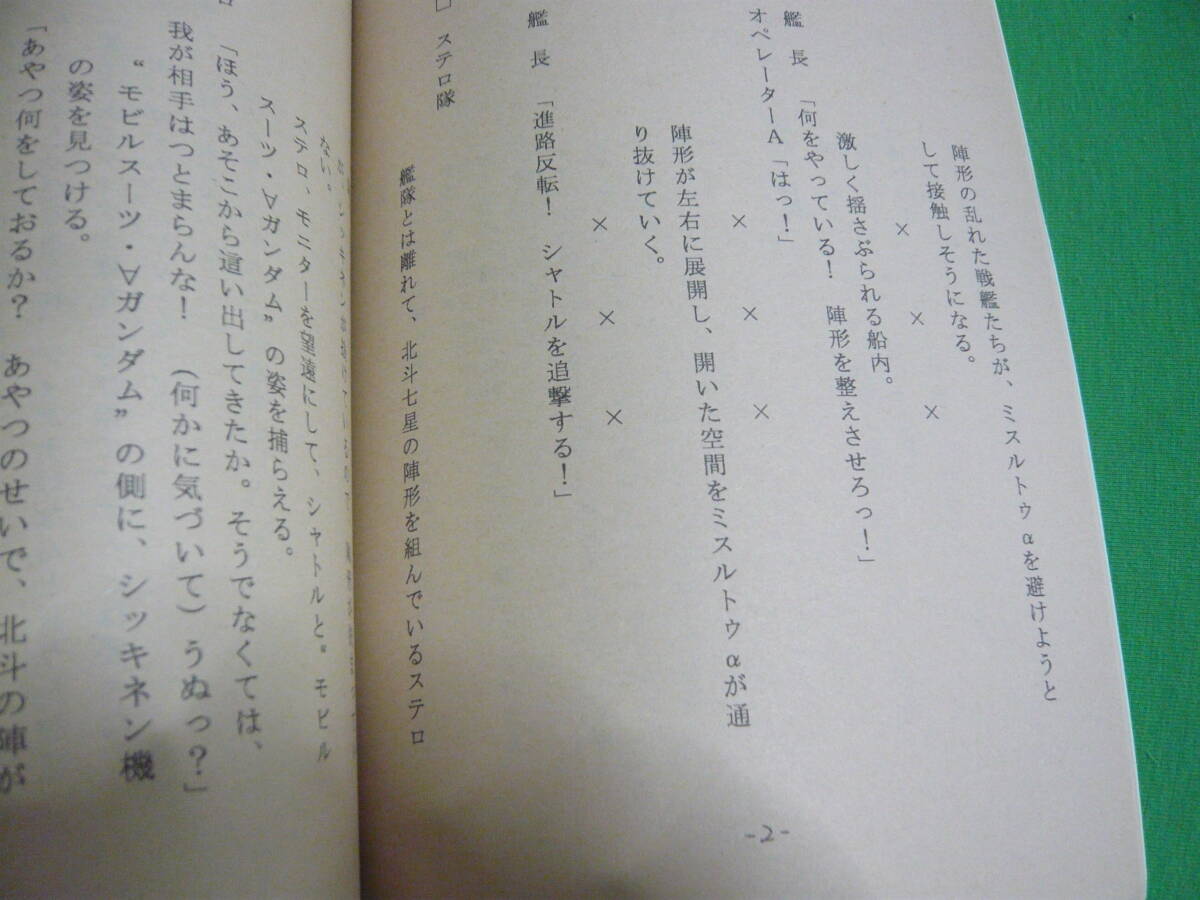 陣形の乱れた戦艦たちが、ミスルトゥαを避けようと
して接触しそうになる。
× × ×
激しく揺さぶられる船内。
艦　長　「何をやっている！　陣形を整えさせろっ！」
オペレーターA「はっ！」
× × ×
陣形が左右に展開し、開いた空間をミスルトゥαが通
り抜けていく。
× × ×
艦　長　「進路反転！　シャトルを追撃する！」
□　ステロ隊
艦隊とは離れて、北斗七星の陣形を組んでいるステロ
ない。
ステロ、モニターを望遠にして、シャトルと〝モビル
スーツ・∀ガンダム〟の姿を捕らえる。
ロ　「ほう、あそこから這い出してきたか。そうでなくては、
我が相手はつとまらんな！　（何かに気づいて）うぬっ？」
〝モビルスーツ・∀ガンダム〟の側に、シッキネン機
の姿を見つける。
「あやつ何をしておるか？　あやつのせいで、北斗の陣が
-2-